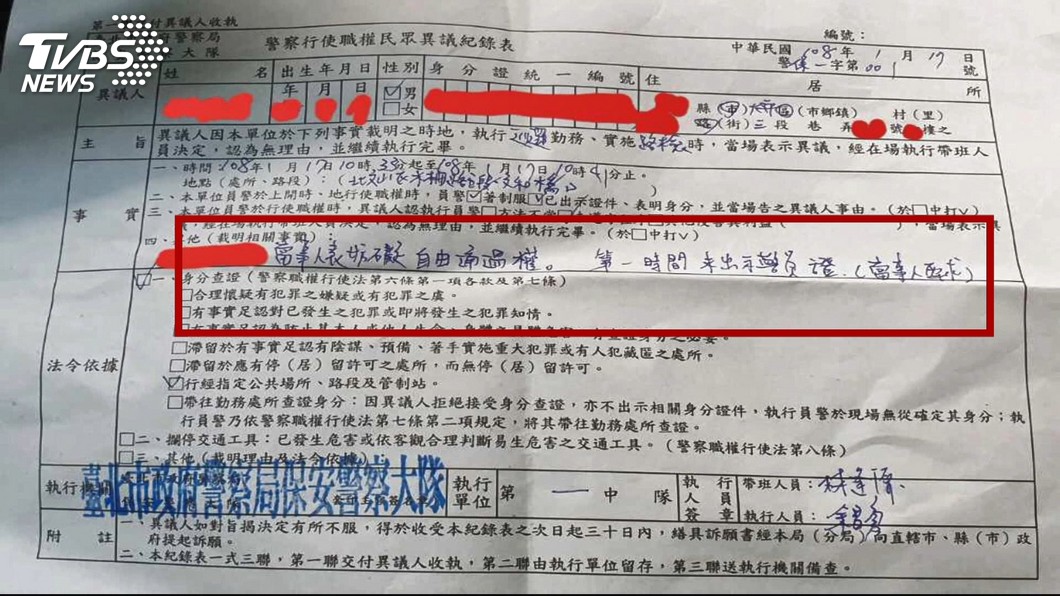 TVBS NEWS
第一 付異議人收執
府警察局
大隊
警察行使職權民眾異議紀錄表
編號：
中華民國108年1月17日
警保一字第001號
異議人
姓名 出生年月日 性別 身分證統一編號 住居所
年 月 日
☑男
□女
縣(市) 區(市鄉鎮) 村(里)
路(街)三段 巷 弄 號 樓之
主旨
異議人因本單位於下列事實裁明之時地，執行巡邏勤務、實施路檢時，當場表示異議，經在場執行帶班人
員決定，認為無理由，並繼續執行完畢。
事實
一、時間：108年1月17日10時 分起至108年1月17日10時41分止。
地點(處所、路段)：(
二、本單位員警於上開時、地行使職權時，員警☑著制服 已出示證件、表明身分，並當場告之異議人事由。(於□中打ˇ)
三、本單位員警於行使職權時，異議人認執行員警
經在場執行帶班人員決定，認為無理由，並繼續執行完畢。(於□中打ˇ)
四、其他(載明相關事實)：
當事人表妨礙自由通過權。第一時間未出示警員證.(當事人要求)
法令依據
☑一、身分查證(警察職權行使法第六條第一項各款及第七條)
□合理懷疑有犯罪之嫌疑或有犯罪之虞。
□有事實足認對已發生之犯罪或即將發生之犯罪知情。
□有事實足認為防止其本人或他人生命、身體之具體危害，有查證身分之必要。
□滯留於有事實足認有陰謀、預備、著手實施重大犯罪或有人犯藏匿之處所。
□滯留於應有停(居)留許可之處所，而無停(居)留許可。
☑行經指定公共場所、路段及管制站。
□帶往勤務處所查證身分：因異議人拒絕接受身分查證，亦不出示相關身分證件，執行員警於現場無從確定其身分；執
行員警乃依警察職權行使法第七條第二項規定，將其帶往勤務處所查證。
□二、攔停交通工具：已發生危害或依客觀合理判斷易生危害之交通工具。(警察職權行使法第八條)
□三、其他(載明理由及法令依據)：
執行機關
臺北市政府警察局保安警察大隊
執行單位
第一中隊
執行人員簽章
帶班人員：
執行人員：
附註
一、異議人如對旨揭決定有所不服，得於收受本紀錄表之次日起三十日內，繕具訴願書經本局(分局)向直轄市、縣(市)政
府提起訴願。
二、本紀錄表一式三聯，第一聯交付異議人收執，第二聯由執行單位留存，第三聯送執行機關備查。